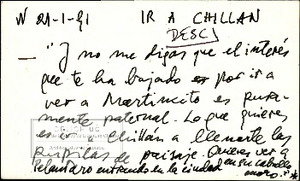 W 29-1-91 IR A CHILLAN
DESC/
— "¿ no me digas que el interés
que te ha bajado es por ir a
ver a Martincito es pura-
mente paternal. Lo que quieres
es ir a Chillán a llenarte las
pupilas de paisaje. Quieres ver a
Pelantaro entrando en la ciudad
en su caballo
moro."